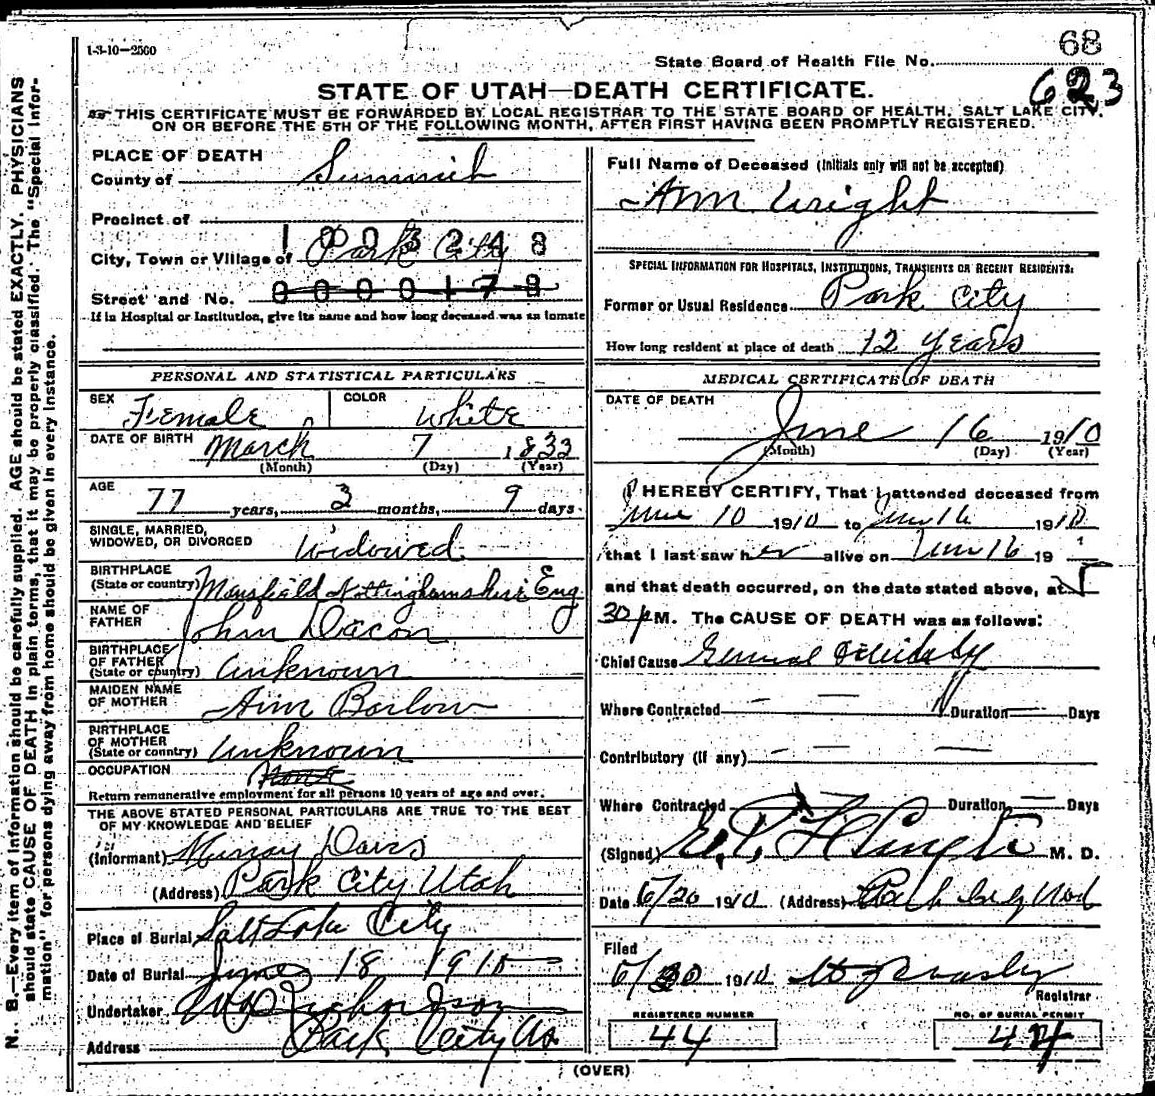 1-3-10-2500
68
State Board of Health File No.
623
STATE OF UTAH—DEATH CERTIFICATE.
THIS CERTIFICATE MUST BE FORWARDED BY LOCAL REGISTRAR TO THE STATE BOARD OF HEALTH, SALT LAKE CITY,
ON OR BEFORE THE 5TH OF THE FOLLOWING MONTH, AFTER FIRST HAVING BEEN PROMPTLY REGISTERED.
N. B.—Every item of information should be carefully supplied. AGE should be stated EXACTLY. PHYSICIANS
should state CAUSE OF DEATH in plain terms, that it may be properly classified. The "Special Infor-
mation" for persons dying away from home should be given in every instance.
PLACE OF DEATH
County of Summit
Precinct of
1003248
City, Town or Village of Park City
Street and No. 0000178
If in Hospital or Institution, give its name and how long deceased was an inmate
PERSONAL AND STATISTICAL PARTICULARS
SEX Female COLOR White
DATE OF BIRTH March 7 1833
(Month) (Day) (Year)
AGE 77 years, 3 months, 9 days
SINGLE, MARRIED,
WIDOWED, OR DIVORCED Widowed
BIRTHPLACE
(State or country) Mansfield Nottinghamshire Eng
NAME OF
FATHER John Dacon
BIRTHPLACE
OF FATHER
(State or country) Unknown
MAIDEN NAME
OF MOTHER Ann Barlow
BIRTHPLACE
OF MOTHER
(State or country) Unknown
OCCUPATION None
Return remunerative employment for all persons 10 years of age and over.
THE ABOVE STATED PERSONAL PARTICULARS ARE TRUE TO THE BEST
OF MY KNOWLEDGE AND BELIEF
(Informant) Murray Davis
(Address) Park City Utah
Place of Burial Salt Lake City
Date of Burial June 18 1910
Undertaker
Address Park City Ut
Full Name of Deceased (Initials only will not be accepted)
Ann Wright
SPECIAL INFORMATION FOR HOSPITALS, INSTITUTIONS, TRANSIENTS OR RECENT RESIDENTS:
Former or Usual Residence Park City
How long resident at place of death 12 years
MEDICAL CERTIFICATE OF DEATH
DATE OF DEATH
June 16 1910
(Month) (Day) (Year)
I HEREBY CERTIFY, That I attended deceased from
June 10 1910 to June 16 1910
that I last saw her alive on June 16 191
and that death occurred, on the date stated above, at 5
30 P M. The CAUSE OF DEATH was as follows:
Chief Cause General Debility
Where Contracted — — Duration — Days
Contributory (if any) — — —
Where Contracted Duration — Days
(Signed) M. D.
Date 6/20 1910 (Address) Park City Utah
Filed
6/30 1910
Registrar
REGISTERED NUMBER
44
NO. OF BURIAL PERMIT
44
(OVER)